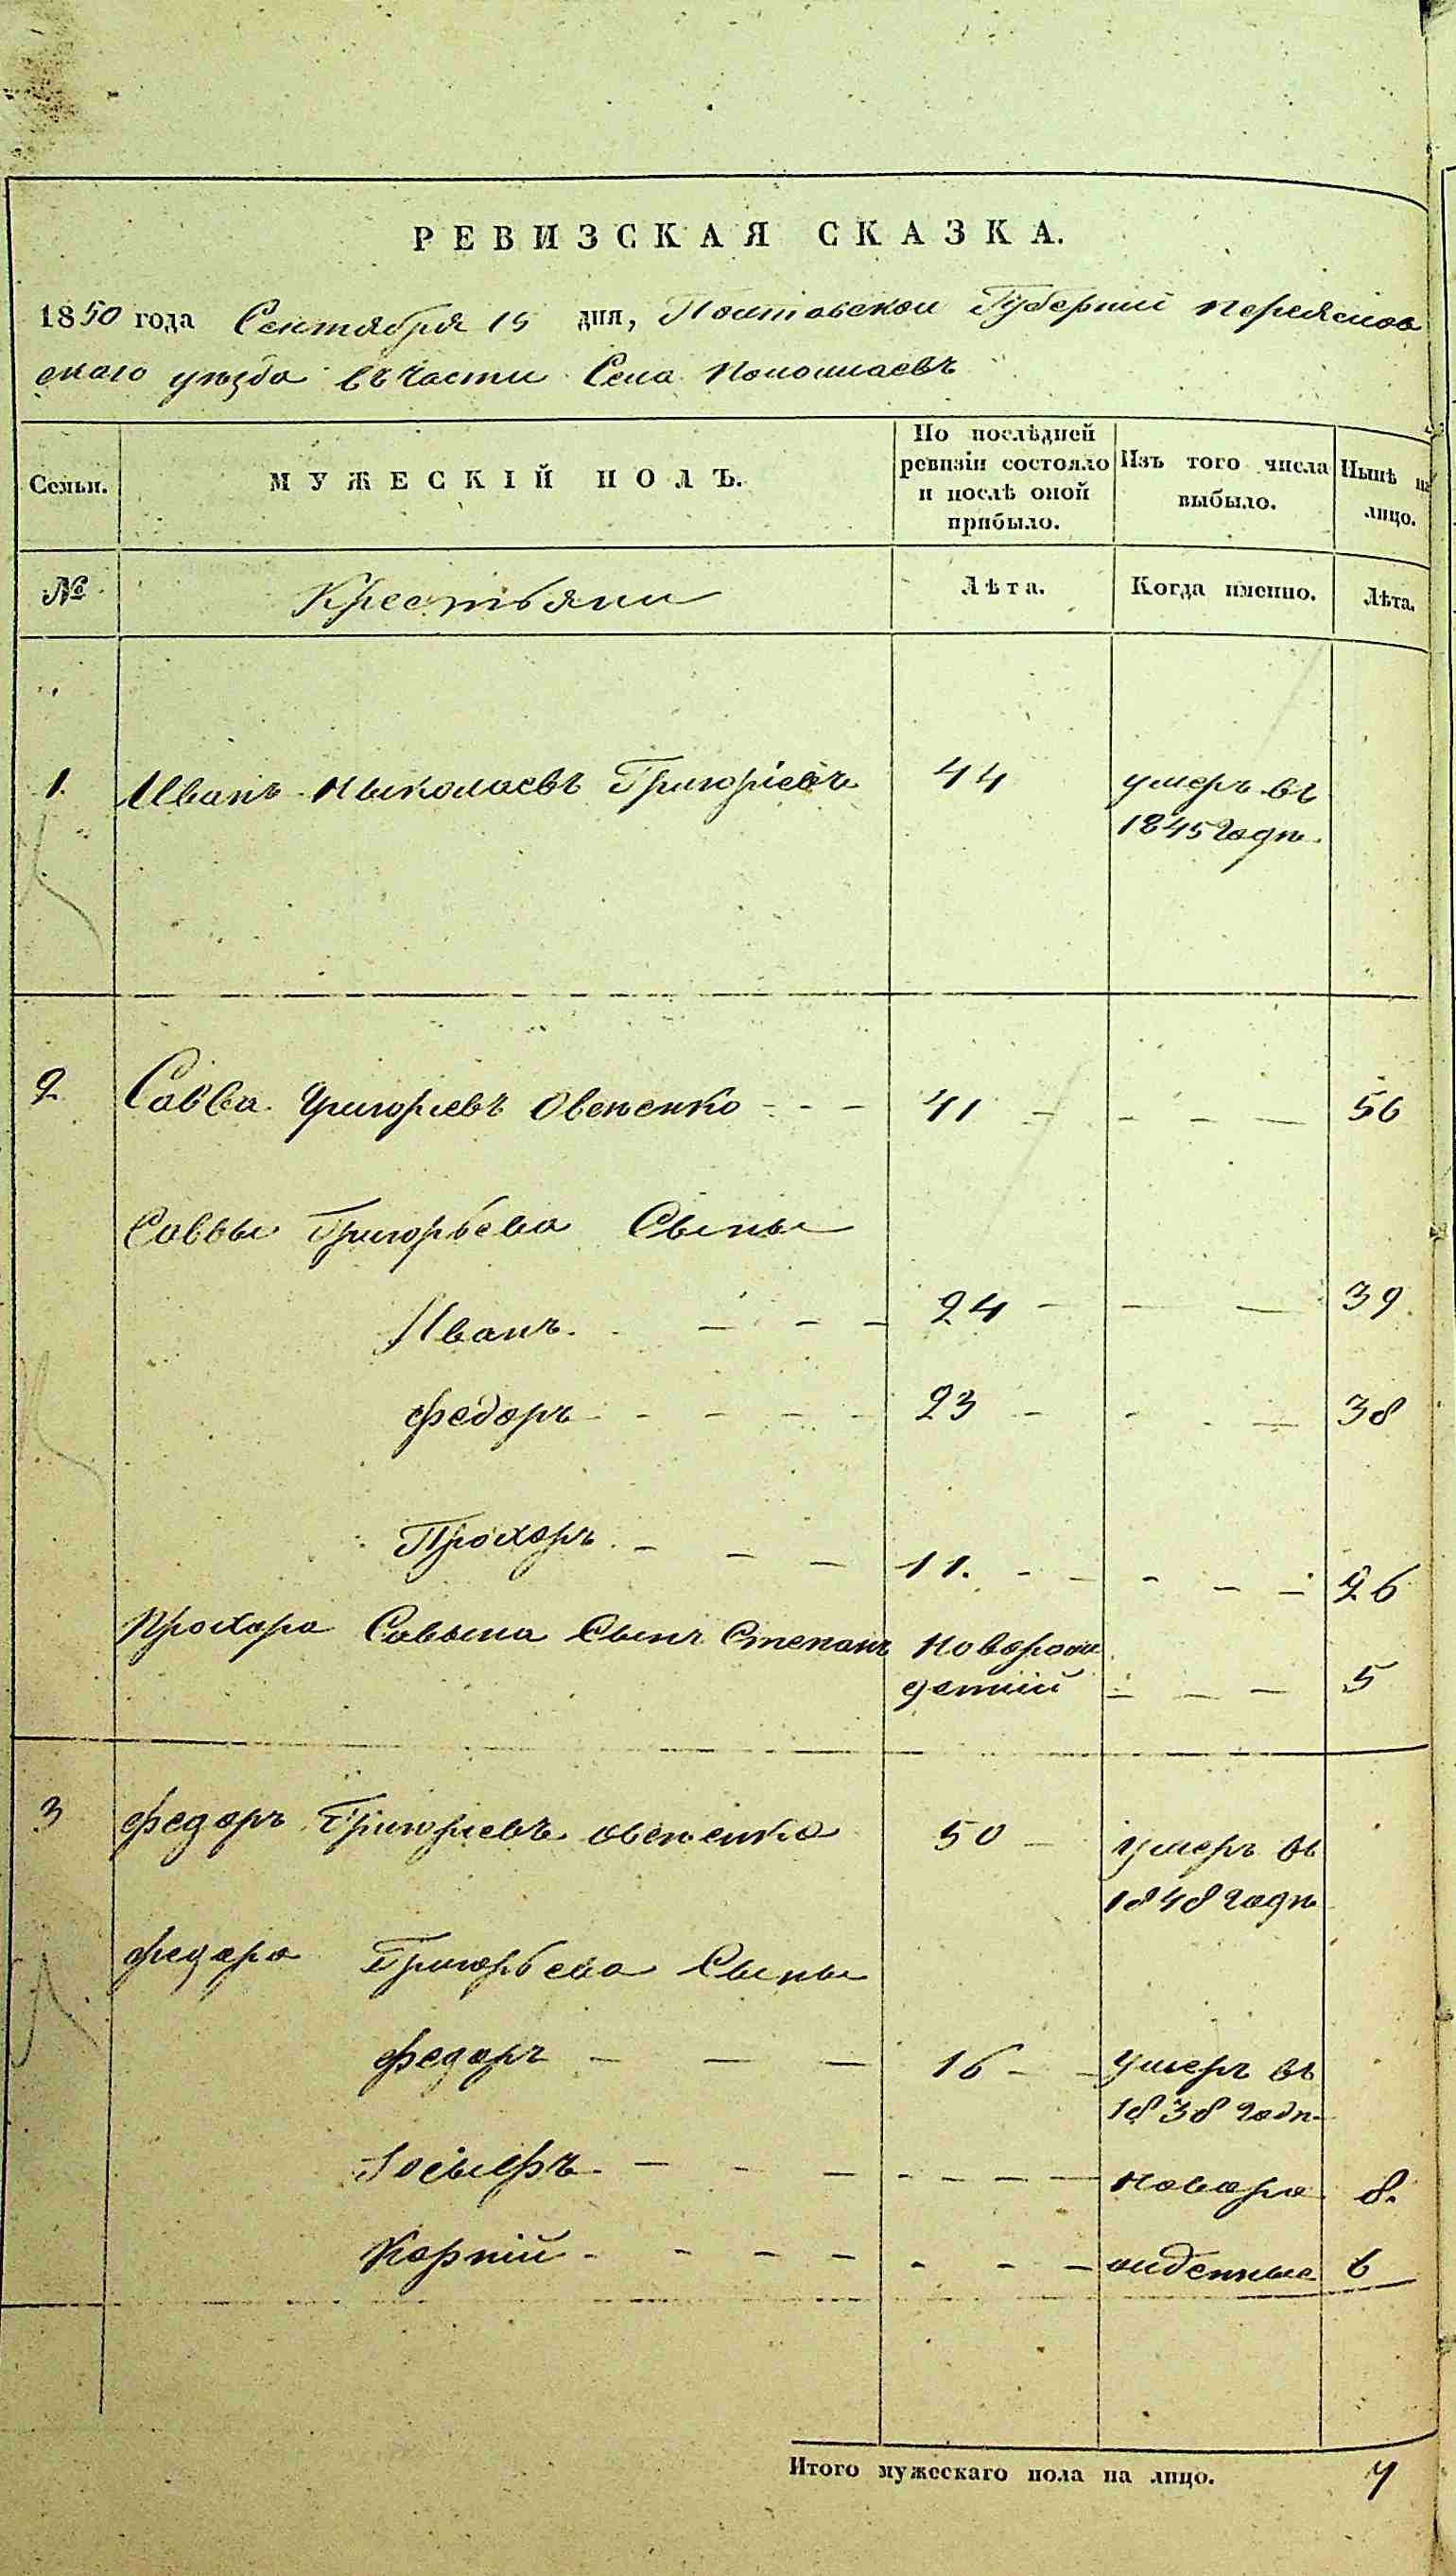 РЕВИЗСКАЯ СКАЗКА.
1850 года Сентября 15 дня, Полтавской Губерніи Переяслов
скаго уезда въ части Села
Семьи.
МУЖЕСКІЙ ПОЛЪ.
По послѣдней ревизіи состояло и послѣ оной прибыло.
Изъ того числа выбыло.
Нынѣ на лицо.
№
Крестьяни
Лѣта.
Когда именно.
Лѣта.
1. Иванъ Николаевъ Григоріевъ 44 умеръ въ
1845 годѣ.
2 Савва Григориевъ Овененко - - - 41 - - - - 56
Саввы Григорьева Сыны
Иванъ. - - - 24 - - - 39.
Федоръ - - - - - 23 - - - - 38
Прохоръ. - - - 11. - - - - - 26
Прохора Савина Сынъ Степанъ Новорож
денній - - - 5
3 Федоръ Григориевъ Овененко 50 - умеръ въ
1848 годѣ
Федора Григорьева Сыны
Федоръ - - - 16 - - умеръ въ
1838 годѣ.
Іосыфъ. - - - - - - - новоро 8.
Корній - - - - - - - жденные 6
Итого мужескаго пола на лицо. 7